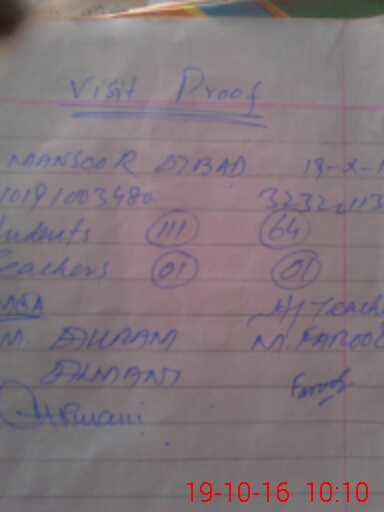 Visit Proof
MANSOOR ABAD 19-X-1
10191003480 32322113
udents 111 64
eachers 01 01
MEA H/Teach
M. AKRAM M. FAROO
ALMANI Farooq
19-10-16 10:10